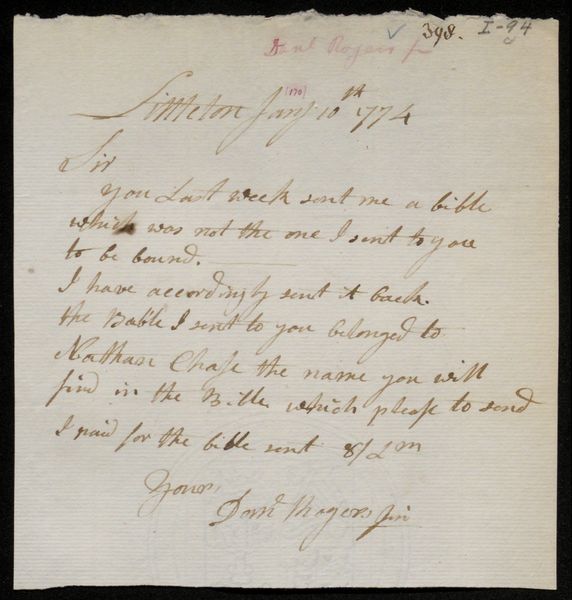 398. I-94
Danl Rogers jr
[170]
Littleton Jany 10th 1774
Sir
you Last week sent me a bible
which was not the one I sent to you
to be bound.
I have accordingly sent it back.
the Bable I sent to you belonged to
Nathan Chase the name you will
find in the Bible which please to send
I paid for the bible sent 8/ Lm
Yours,
Danl Rogers jun